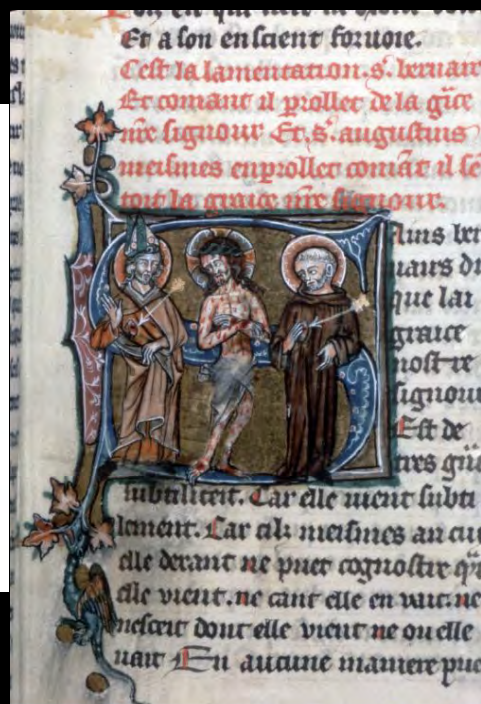 Et a son enscient foruoie.
Cest la lamentation .s. bernair
Et comant il prollet de la gice
nre signour Et .s. augustins
meismes en prollet comat il se
toit la graice nre signour.
ains ber
nairs di
que lai
graice
nostre
signour
Est de
tres gn
subtiliteit. Car elle uient subti
lement. Car cilz meismes an cui
elle descant ne puet cognostre
elle vient. ne cant elle en vait. ne
nesceit dont elle vient ne ou elle
uait En aucune maniere puet